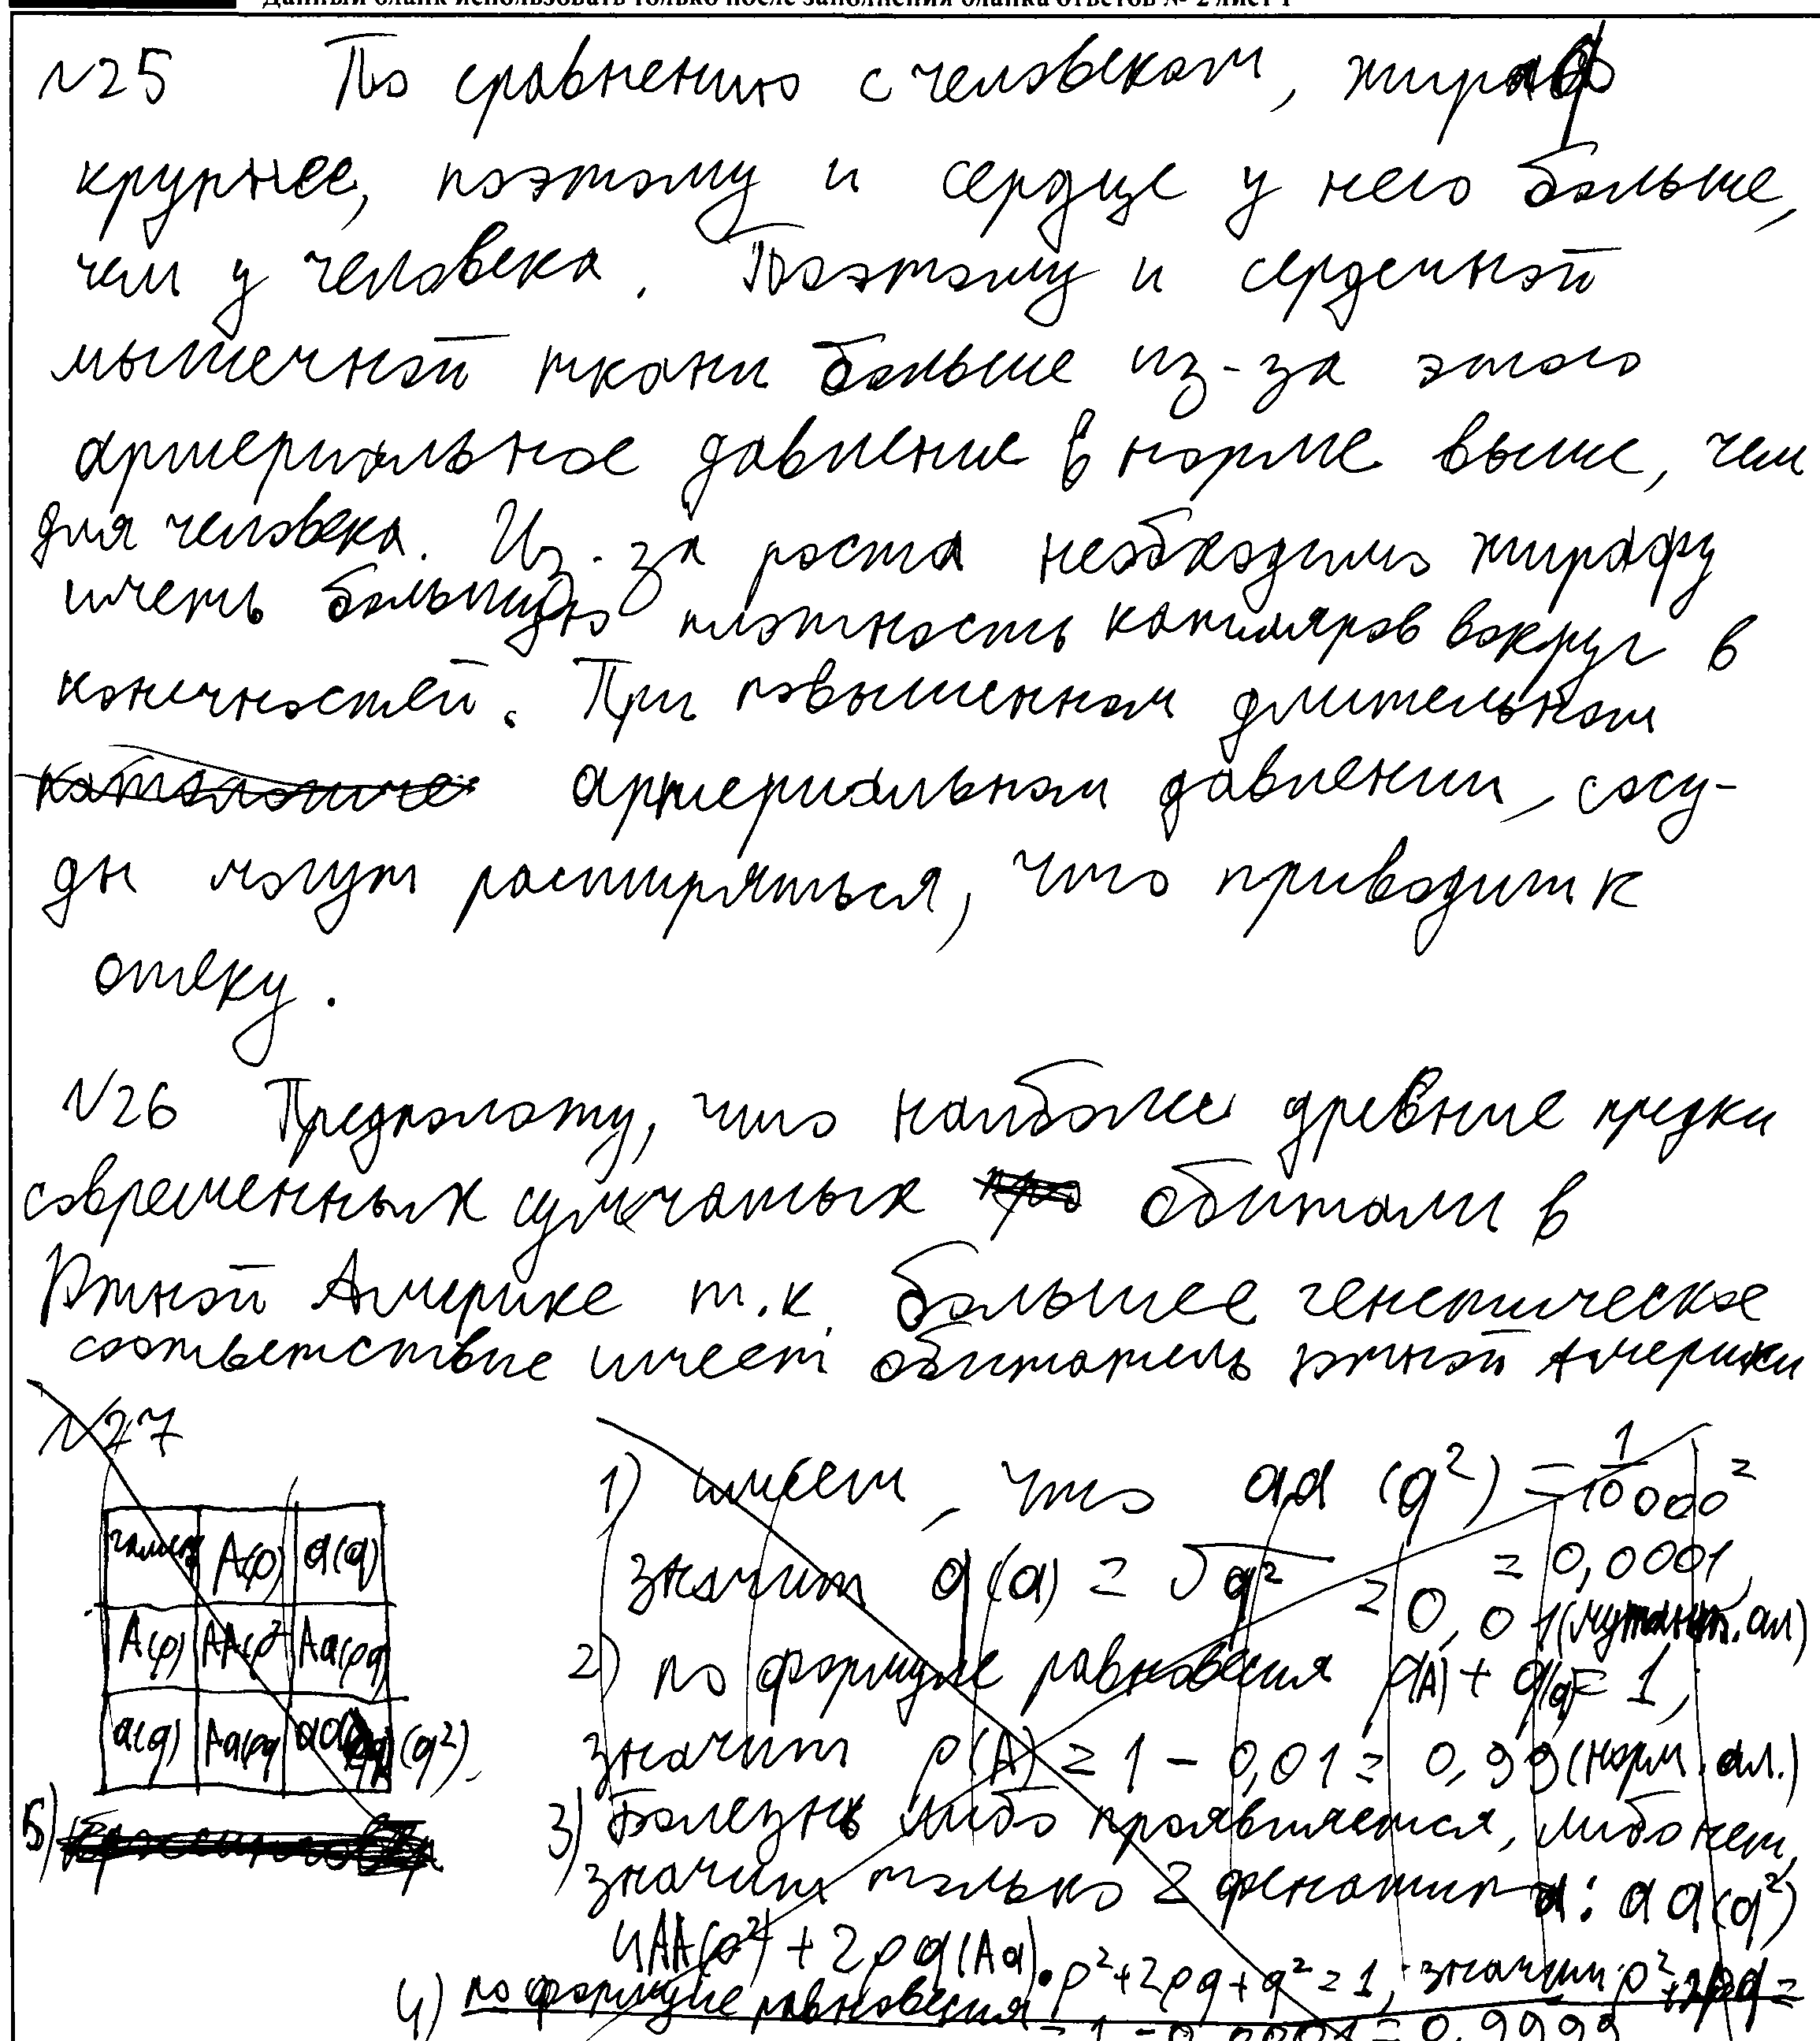 Данный бланк использовать только после заполнения бланка ответов № 2 лист 1
№25 По сравнению с человеком, жираф
крупнее, поэтому и сердце у него больше,
чем у человека. Поэтому и сердечной
мышечной ткани больше из-за этого
артериальное давление в норме выше, чем
для человека. Из-за роста необходимо жирафу
иметь большую плотность капиляров вокруг в
конечностей. При повышенном длительном
артериальном давлении, сосу-
ды могут расширяться, что приводит к
отеку.
№26 Предположу, что наиболее древние предки
современных сумчатых обитали в
Южной Америке т.к. большее генетическое
соответствие имеет обитатель южной Америки
№27
гаметы A(p) a(q)
A(p) AA(p²) Aa(pq)
a(q) Aa(pq) aa (q²)
1) имеем, что aa (q²) = 1/10000 =
= 0,0001,
значит q(a) = √q² = 0,01 (мутант. ал)
2) по формуле равновесия p(A) + q(a) = 1,
значит p(A) = 1 - 0,01 = 0,99 (норм. ал.)
3) Болезнь либо проявляется, либо нет,
значит только 2 фенотипа: aa(q²)
и AA(p²) + 2pq(Aa).
4) по формуле равновесия p²+2pq+q²=1, значит p²+2pq=
= 1 - 0,0001 = 0,9999
5)